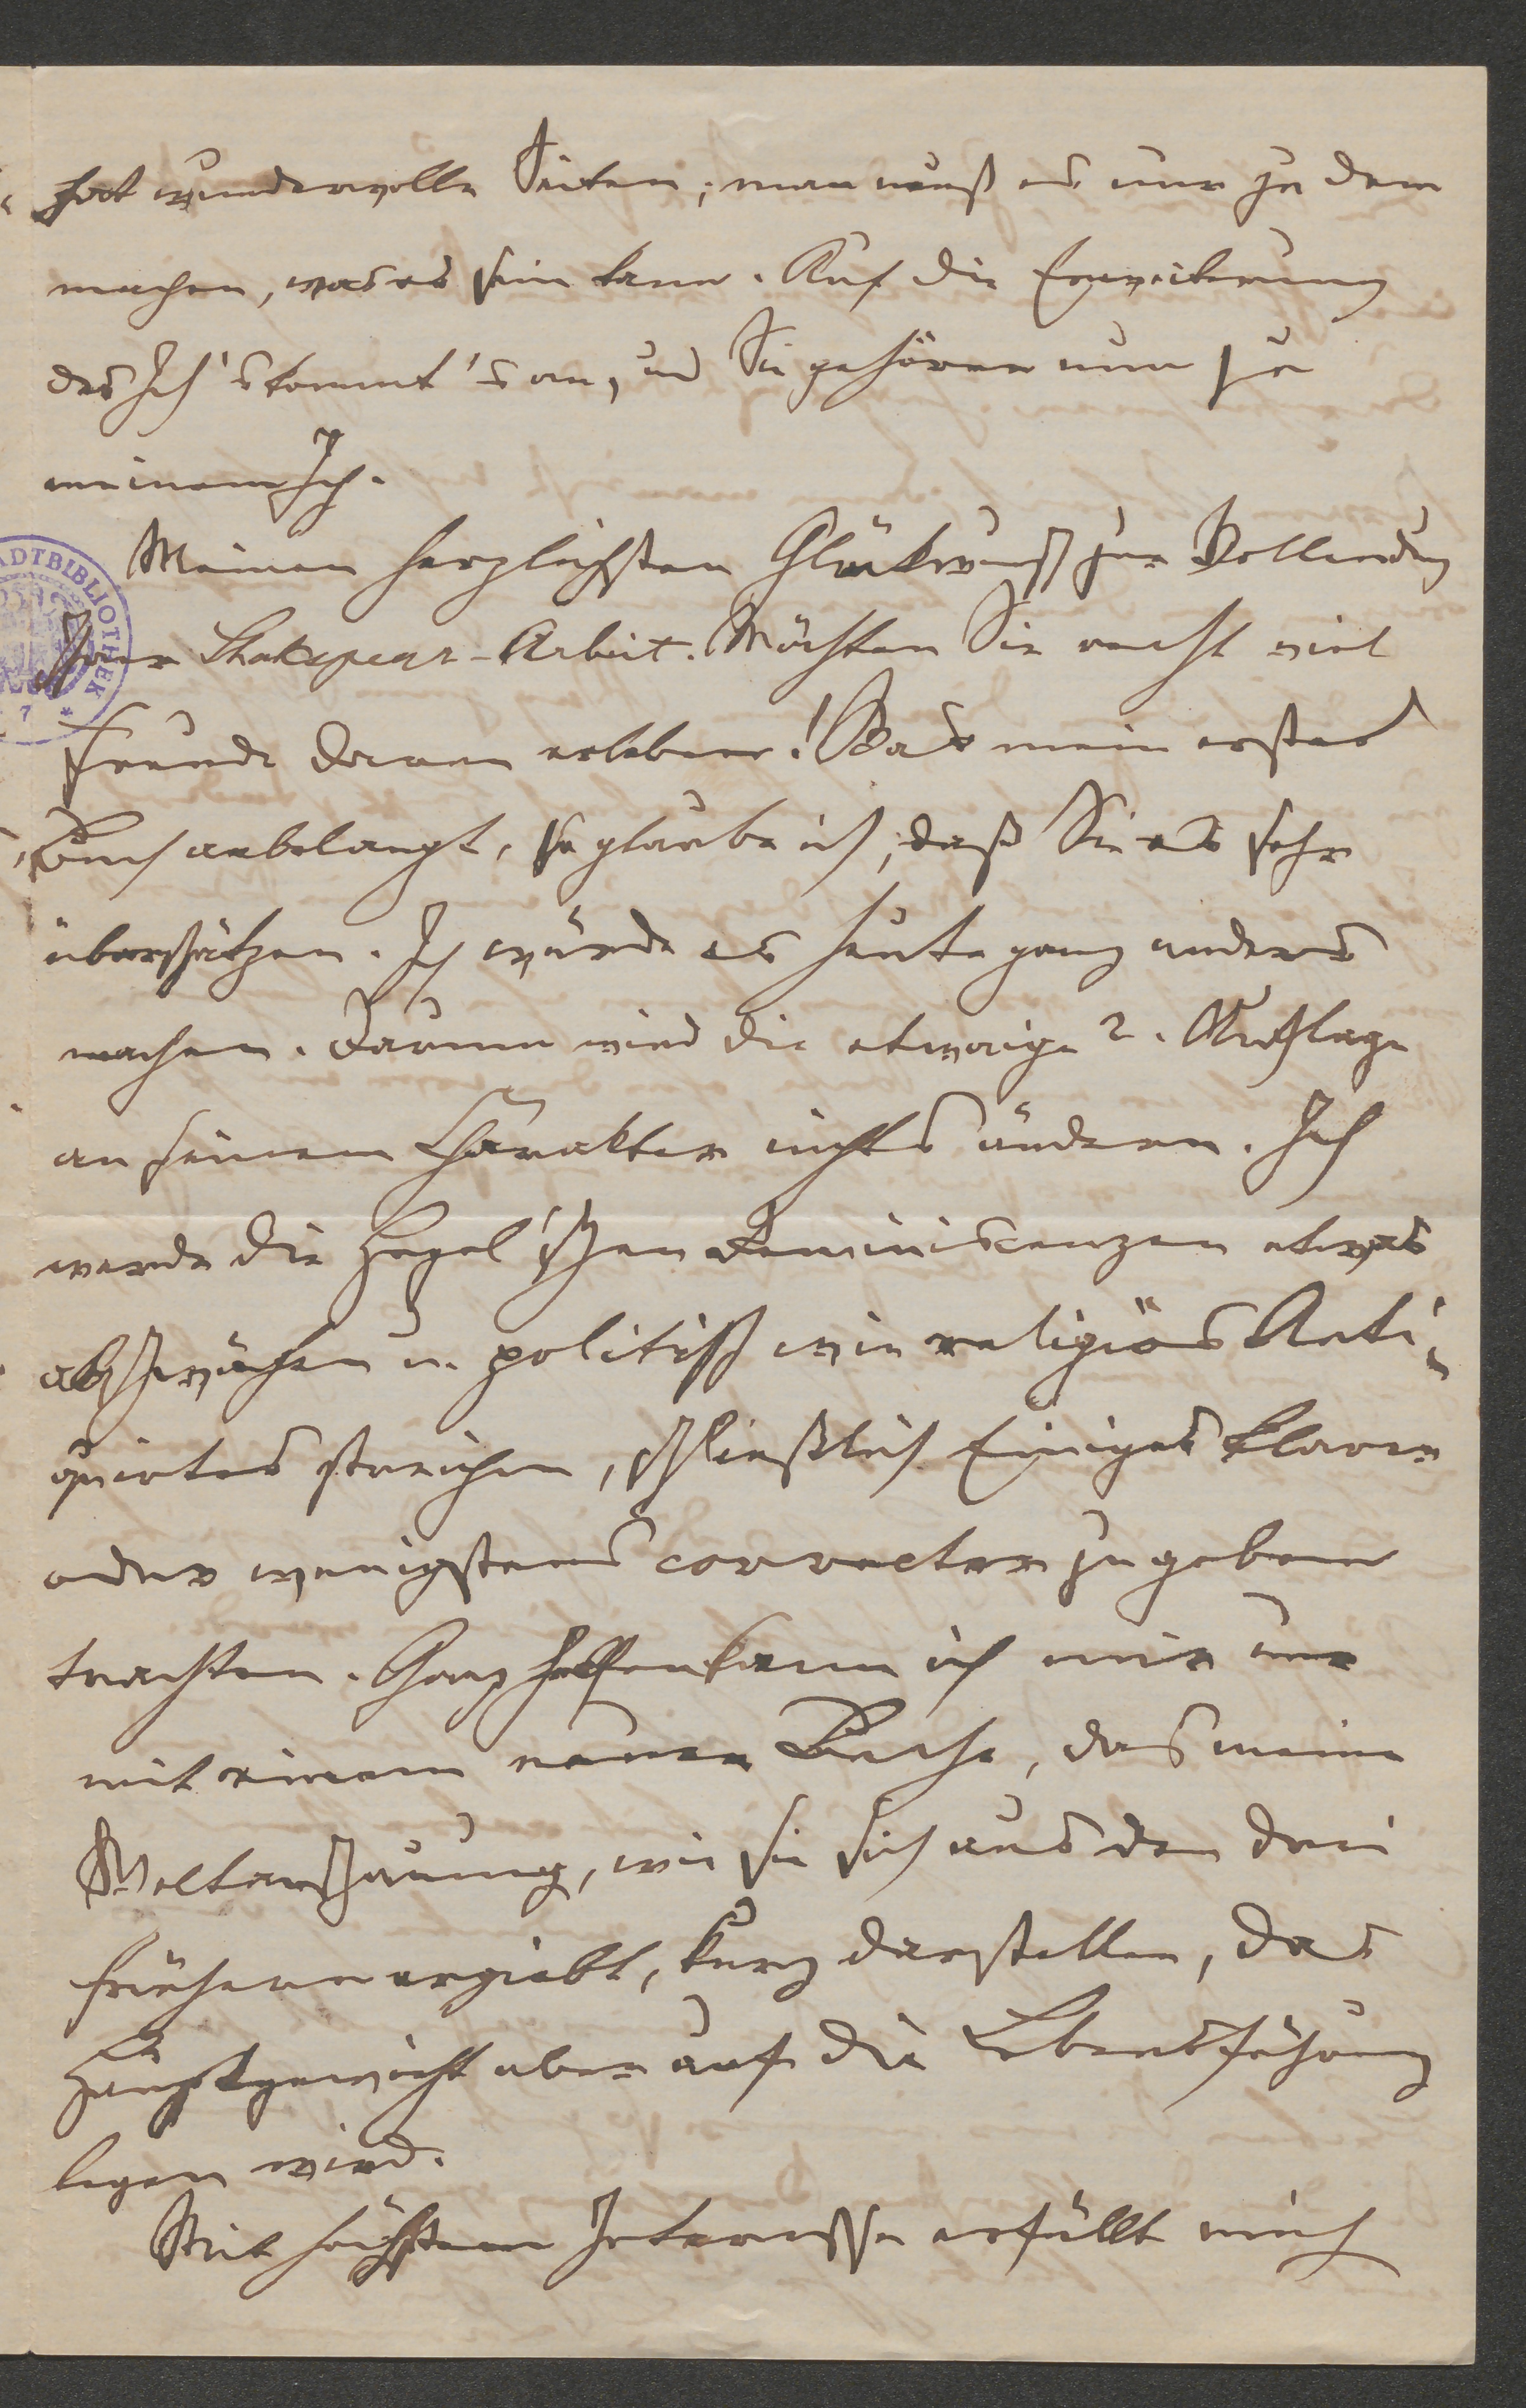 hat wundervolle Seiten; man muß es nur zu dem
machen, was es sein kann. Auf die Erweiterung
des Ich's kommt's an, und Sie gehören nun zu
meinem Ich.
Meinen herzlichsten Glückwunsch zur Vollendung
Ihrer Shakspear-Arbeit. Möchten Sie recht viel
Freude daran erleben! Was mein erstes
Buch anbelangt, so glaube ich, daß Sie es sehr
überschätzen. Ich würde es heute ganz anders
machen. Darum wird die etwaige 2. Auflage
an seinem Charakter nichts ändern. Ich
werde die Hegel'schen Reminiscenzen etwas
abschwächen u. politisch wie religiös Anti-
quirtes streichen, schließlich Einiges klarer
oder wenigstens correcter zu geben
trachten. Ganz helfen kann ich mir nur
mit einem neuen Buche, das meine
Weltanschauung, wie sie sich aus den drei
frühern ergiebt, kurz darstellen, das
Hauptgewicht aber auf die Lebensführung
legen wird.
Mit höchstem Interesse erfüllt mich
ADTBIBLIOTHEK
7 *